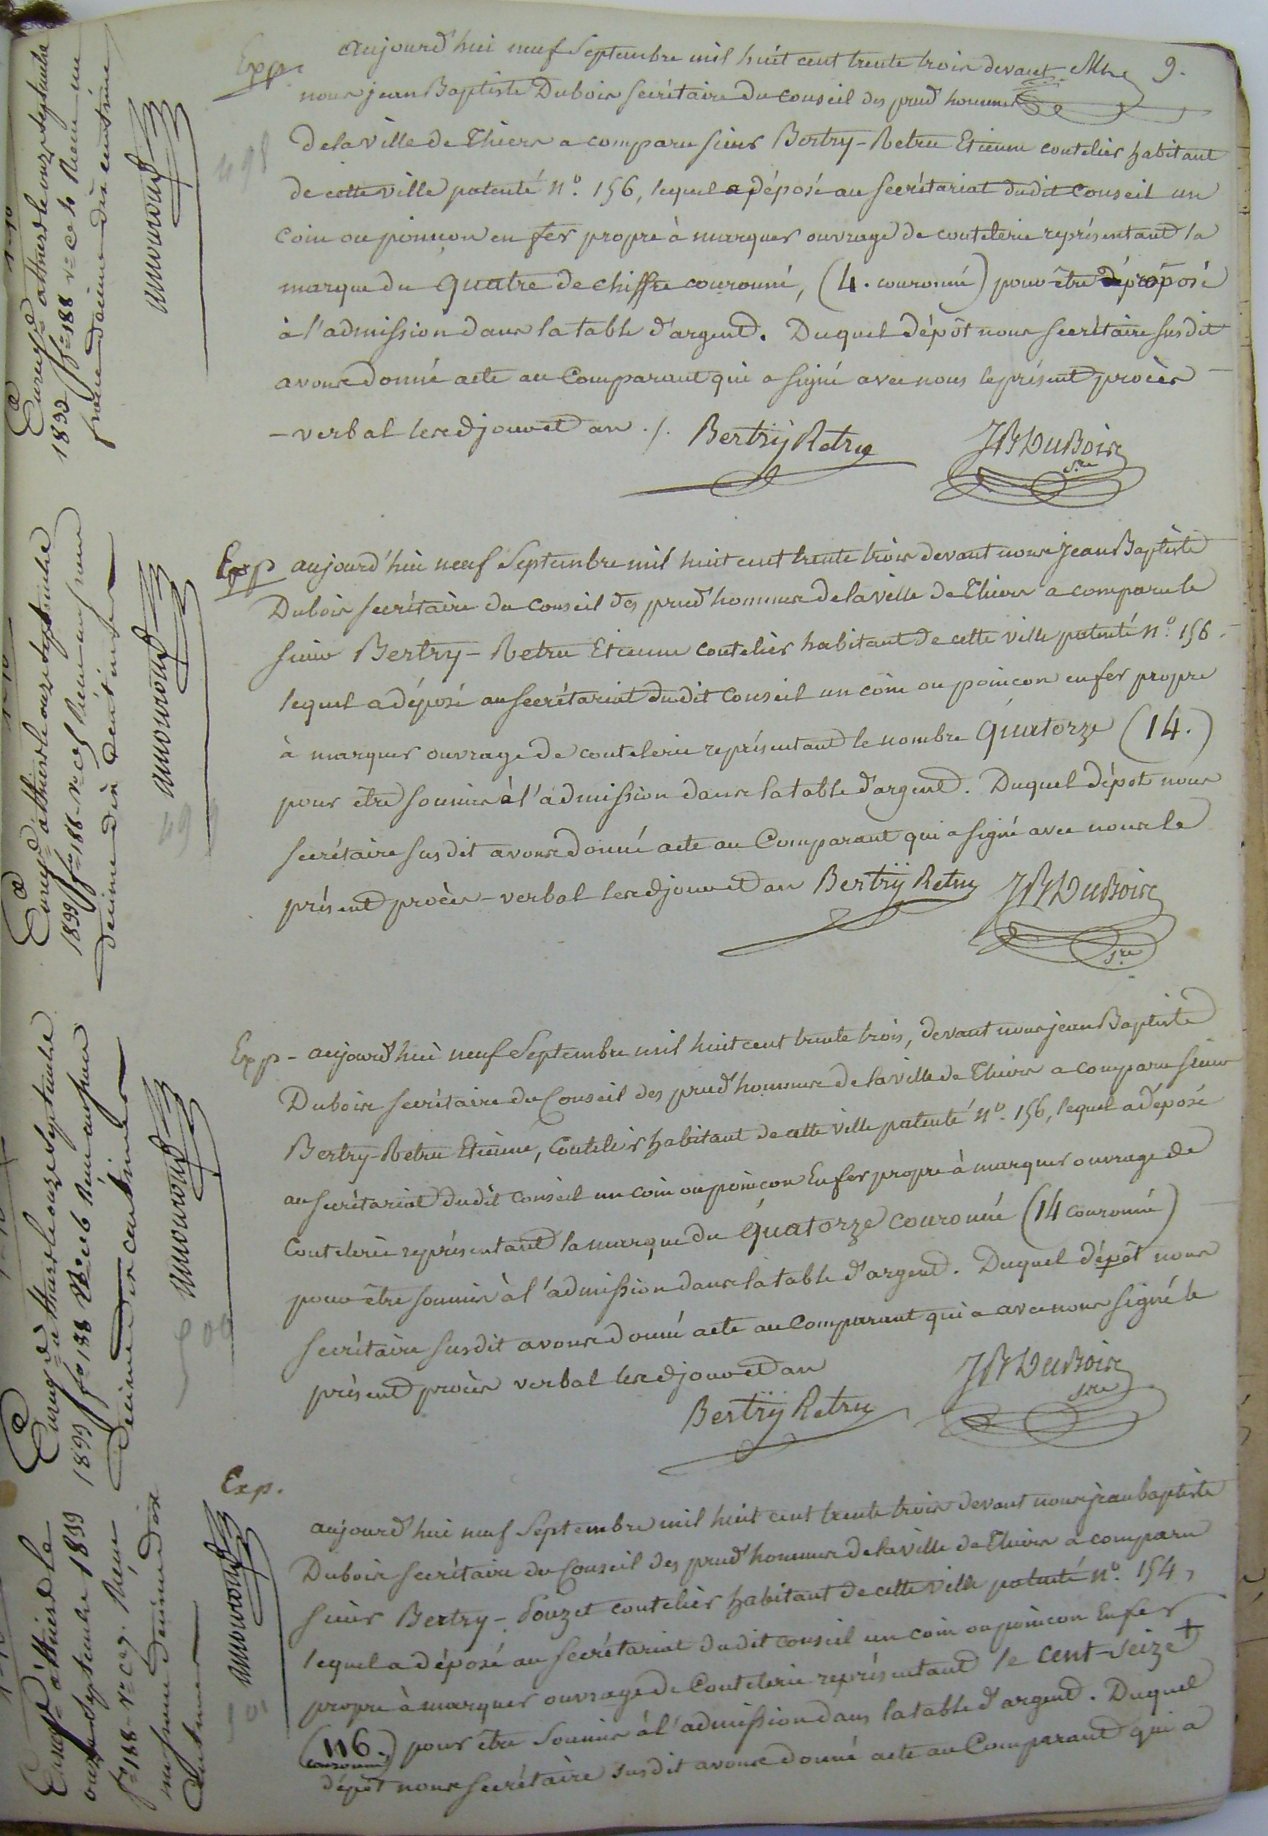 9.
Exp. aujourd'hui neuf Septembre mil huit cent trente trois devant
nous jean Baptiste Dubois secrétaire du Conseil des prud'hommes
de la ville de Thiers a comparu sieur Bertry-Retru Etienne coutelier habitant
de cette ville patenté n.º 156, lequel a déposé au secrétariat dudit Conseil un
coin ou poinçon en fer propre à marquer ouvrage de coutelerie représentant la
marque du quatre de chiffre couronné, (4. couronné) pour être proposé
à l'admission dans la table d'argent. Duquel dépôt nous secrétaire susdit
avons donné acte au Comparant qui a signé avec nous le présent procès
-verbal lesd. jour et an ./. Bertry Retru JB Dubois
S.re
Exp aujourd'hui neuf Septembre mil huit cent trente trois devant nous Jean Baptiste
Dubois secrétaire du Conseil des prud'hommes de la ville de Thiers a comparu le
sieur Bertry-Retru Etienne coutelier habitant de cette ville patenté n.º 156
lequel a déposé au secrétariat dudit Conseil un coin ou poinçon en fer propre
à marquer ouvrage de coutelerie représentant le nombre Quatorze (14.)
pour être soumis à l'admission dans la table d'argent. Duquel dépôt nous
secrétaire susdit avons donné acte au Comparant qui a signé avec nous le
présent procès-verbal lesd. jour et an Bertry Retru JB Dubois
S.re
Exp - aujourd'hui neuf Septembre mil huit cent trente trois, devant nous jean Baptiste
Dubois secrétaire du Conseil des prud'hommes de la ville de Thiers a comparu sieur
Bertry-Retru Etienne, Coutelier habitant de cette ville patenté n.º 156, lequel a déposé
au secrétariat dudit Conseil un coin ou poinçon En fer propre à marquer ouvrage de
Coutelerie représentant la marque du quatorze couronné (14 couronné)
pour être soumis à l'admission dans la table d'argent. Duquel dépôt nous
secrétaire susdit avons donné acte au Comparant qui a avec nous signé le
présent procès verbal lesd. jour et an
Bertry Retru JB Dubois
S.re
Exp.
aujourd'hui neuf Septembre mil huit cent trente trois devant nous jean baptiste
Dubois secrétaire du Conseil des prud'hommes de la ville de Thiers a comparu
sieur Bertry-Douzet coutelier habitant de cette ville patenté n.º 154,
lequel a déposé au secrétariat dudit conseil un coin ou poinçon En fer
propre à marquer ouvrage de Coutelerie représentant le cent-seize
(116. couronné) pour être soumis à l'admission dans la table d'argent. Duquel
dépôt nous secrétaire susdit avons donné acte au Comparant qui a
Enregé. à thiers le onze septembre
amouroux
498
Enregé. à thiers le onze septembre
amouroux
499
Enregé. à thiers le onze septembre
amouroux
500
Enregé. à thiers le
onze septembre 1833
amouroux